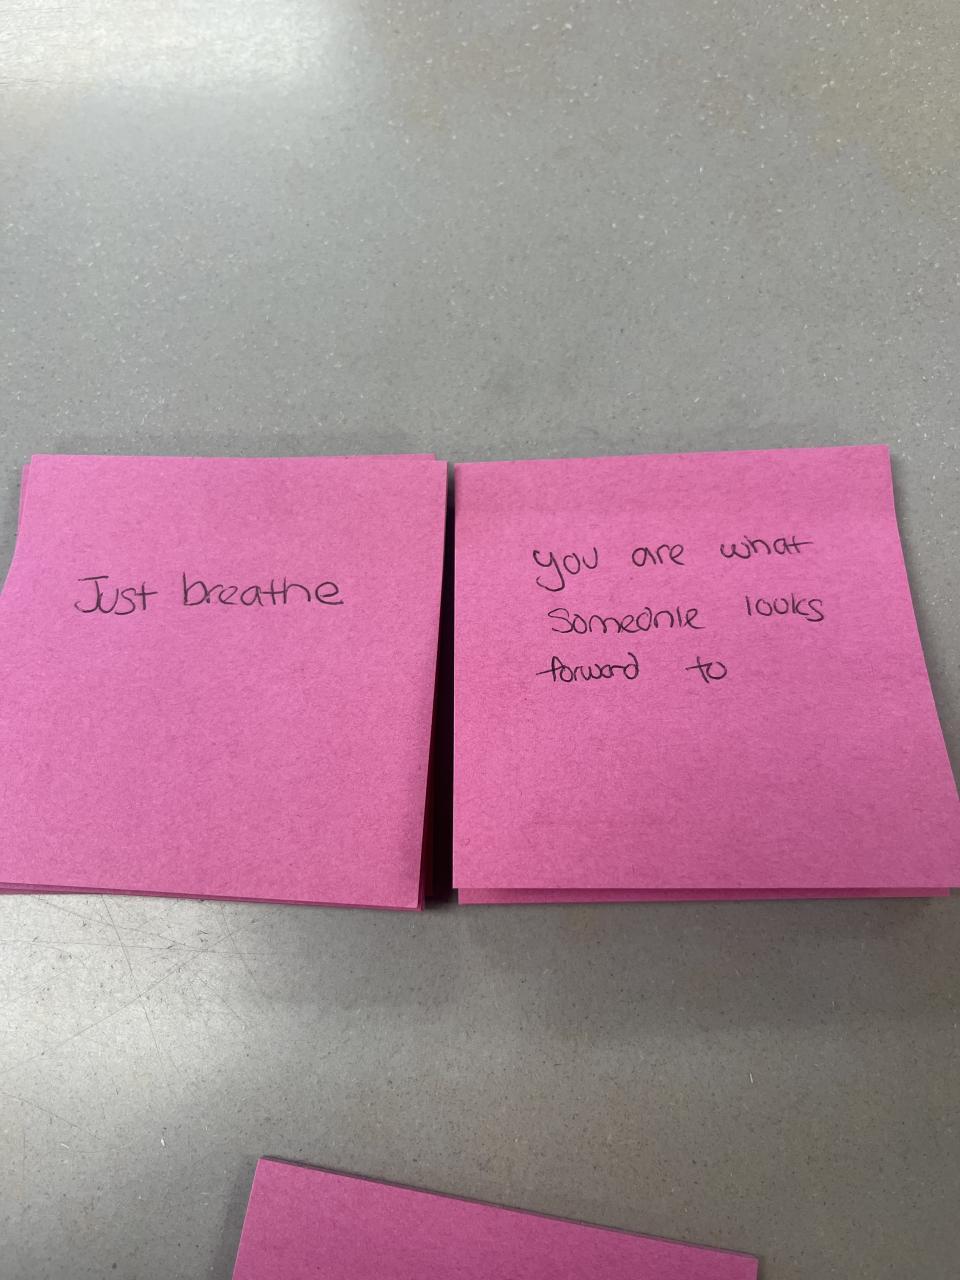 Just breathe
you are what
someone looks
forward to